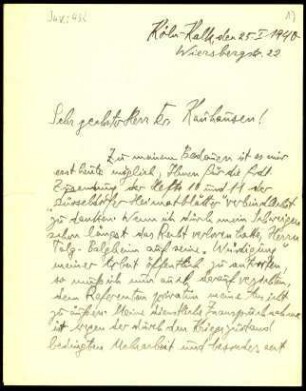 Köln-Kalk, den 25 I 1940
Wiersbergstr. 22
Sehr geehrter Herr Dr. Kauhausen!
Zu meinem Bedauern ist es mir
erst heute möglich, Ihnen für die frdl.
Zusendung der Hefte 10 und 11 der
"Düsseldorfer Heimatblätter" verbindlichst
zu danken. Wenn ich durch mein Schweigen
schon längst das Recht verloren habe, Herrn
auf seine "Würdigung"
meiner Arbeit öffentlich zu antworten,
so muß ich mir auch darauf verzichten,
dem Referenten privatim meine Ansicht
zu äußern. Meine dienstliche Inanspruchnahme
ist wegen der durch den Kriegszustand
bedingten Mehrarbeit und besonders seit